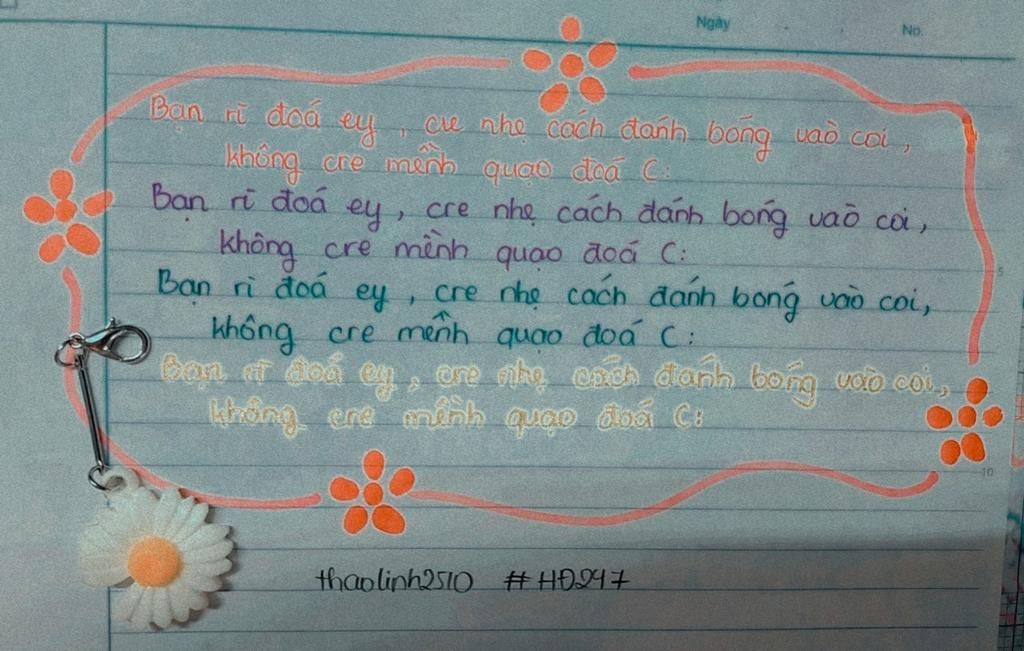 Ngày No.
Bạn rì đoá ey, cre nhẹ cách đánh bońg vaò coi,
không cre mềnh quạo đoá C:
Bạn rì đoá ey, cre nhẹ cách dánh bońg vaò coi,
không cre mềnh quạo đoá C:
Bạn rì đoá ey, cre nhẹ cách đánh bońg vaò coi,
không cre mềnh quạo đoá C:
Bạn rì đoá ey, cre nhẹ cách đánh bońg vaò coi,
không cre mềnh quạo đoá C:
5
10
thaolinh2510 #HĐ247